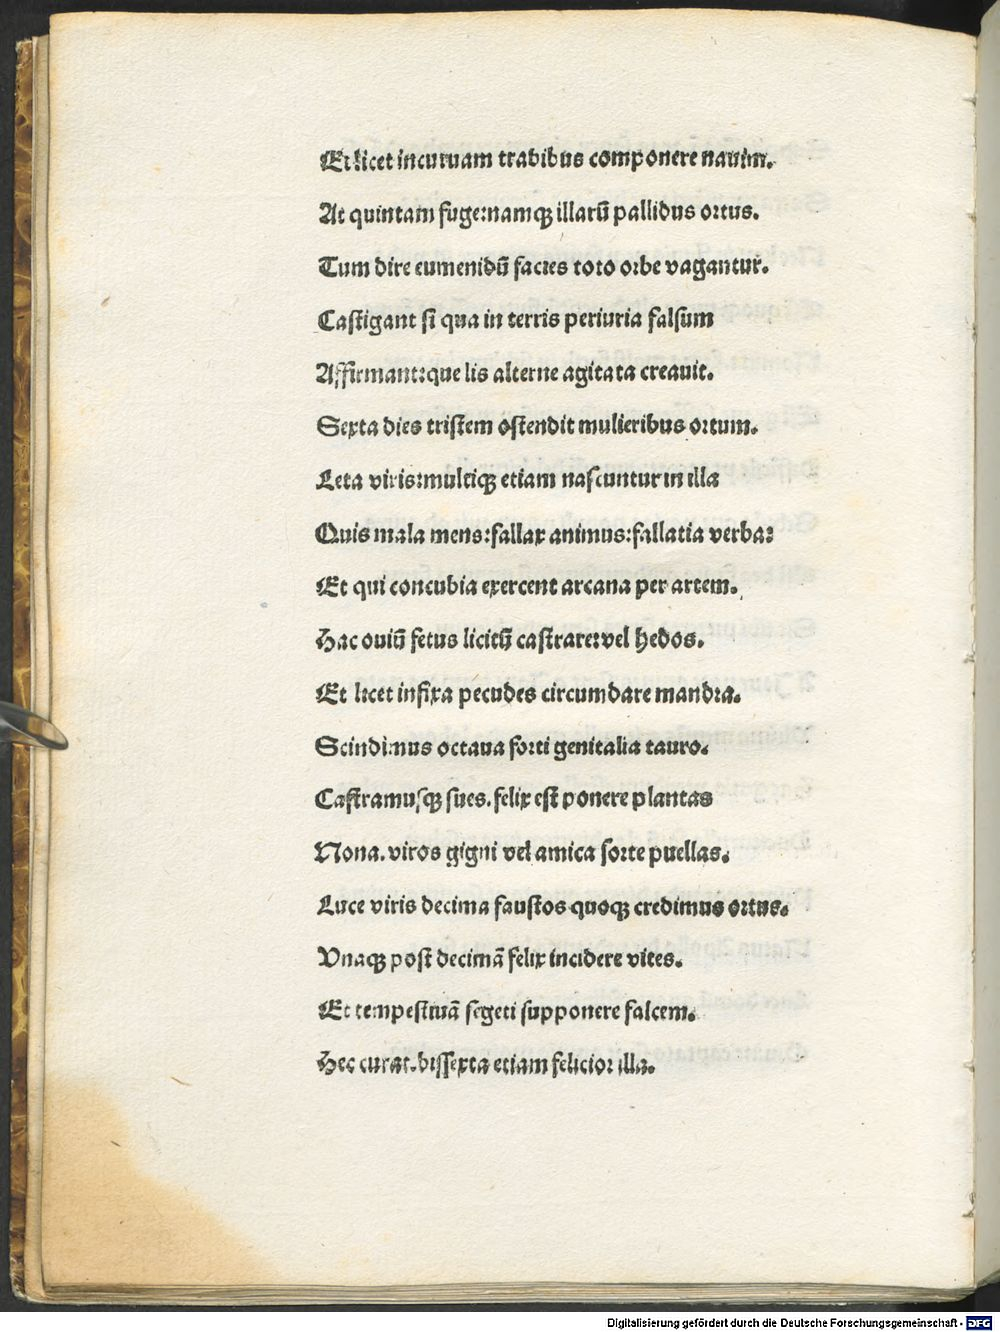 Et licet incuruam trabibus componere nauim.
At quintam fuge:namqȝ illarū pallidus ortus.
Tum dire eumenidū facies toto orbe vagantur.
Castigant si qua in terris periuria falsum
Affirmant:que lis alterne agitata creauit.
Sexta dies tristem ostendit mulieribus ortum.
Leta viris:multiqȝ etiam nascuntur in illa
Quis mala mens:fallax animus:fallatia verba:
Et qui concubia exercent arcana per artem.
Hac ouiū fetus licitū castrare:vel hedos.
Et licet infixa pecudes circumdare mandra.
Scindimus octaua forti genitalia tauro.
Castramusqȝ sues.felix est ponere plantas
Nona.viros gigni vel amica sorte puellas.
Luce viris decima faustos quoqȝ credimus ortus.
Vnaqȝ post decimā felix incidere vites.
Et tempestiuā segeti supponere falcem.
Hec curat.bissexta etiam felicior illa.
Digitalisierung gefördert durch die Deutsche Forschungsgemeinschaft - DFG